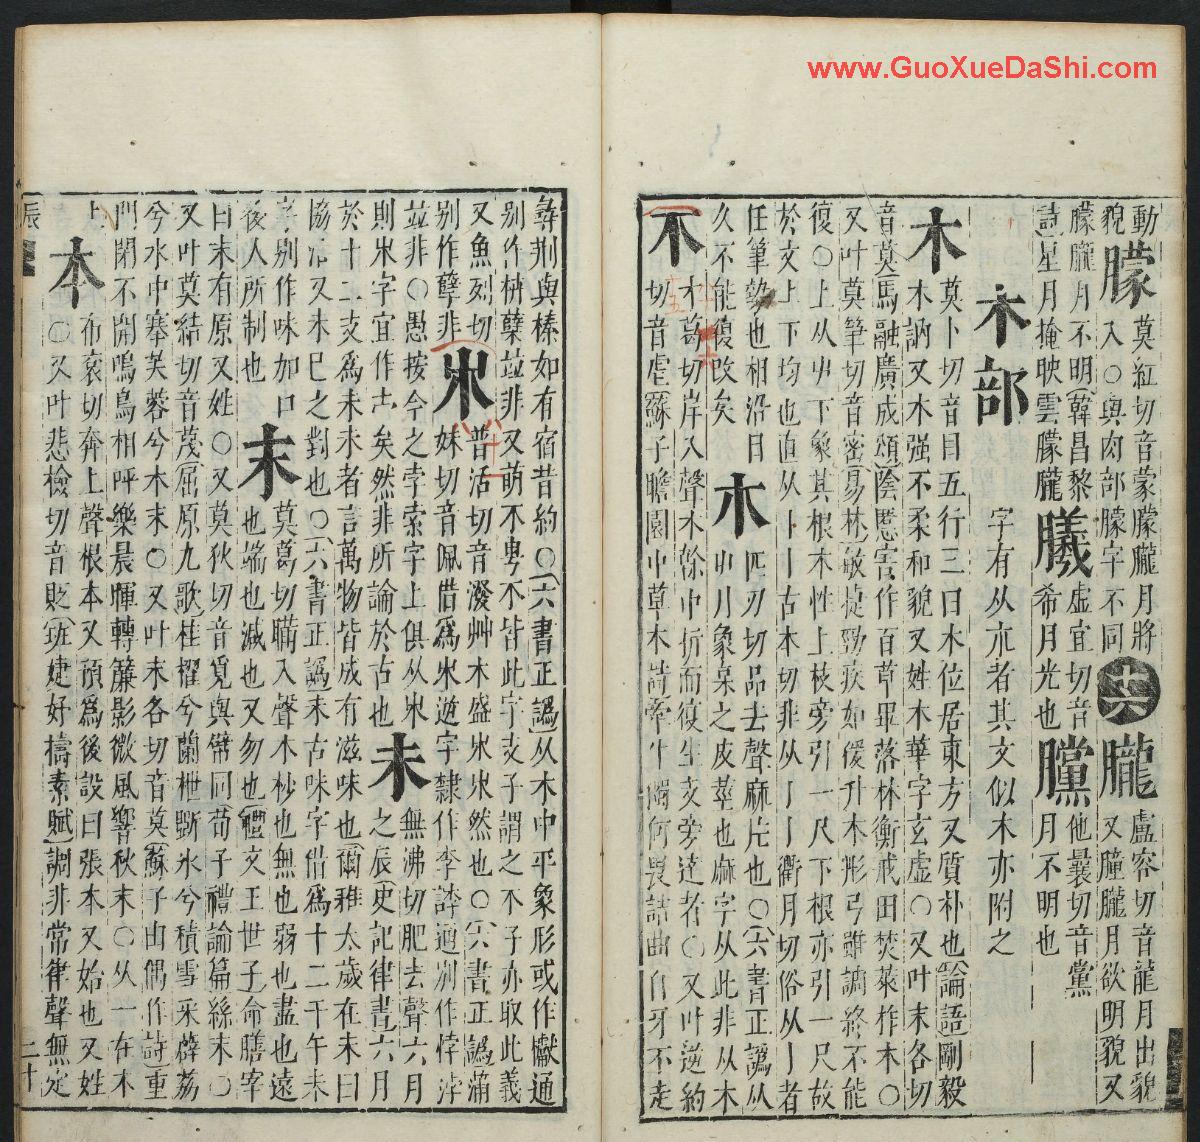 www.GuoXueDaShi.com
動朦莫紅切音蒙朦朧月將
貌入○與肉部朦字不同十六朧盧容切音龍月出貌
朦朧月不明韓昌黎又朣朧月欲明貌又
詩星月掩映雲朦朧㬢虛宜切音希月光也矘他曩切音黨月不明也
木部字有从朩者其文似木亦附之
木莫卜切音目五行三曰木位居東方又質朴也論語剛毅
木訥又木强不柔和貌又姓木華字玄虛○又叶末各切
音莫馬融廣成頌陰慝害作百草畢落林衡戒田焚萊柞木○
又叶莫筆切音密易林敏捷勁疾如猨升木彤弓雖調終不能
復○上从屮下象其根木性上枝旁引一尺下根亦引一尺故
於文上下均也直从丨丨古本切非从亅亅衢月切俗从亅者
任筆勢也相沿日久不能復改矣
朩匹刃切品去聲麻片也○六書正譌从
屮川象枲之皮莖也麻字从此非从木
不才葛切岸入聲木餘中折而復生支旁達者○又叶逆約
切音虐蘇子瞻園中草木詩牽牛獨何畏詰曲自牙不走
彝荆與榛如有宿昔約○六書正譌从木中平象形或作獻通
别作枿孽竝非又萌不㞢不皆此字支子謂之不子亦取此義
又魚列切别作孽非
朩普活切音潑艸木盛朩朩然也○六書正譌蒲
妹切音佩借爲朩逆字隸作李誖通别作悖浡
竝非○愚按今之孛索字上俱从朩
則朩字宜作古矣然非所論於古也
未無沸切肥去聲六月
之辰史記律書六月
於十二支爲未未者言萬物皆成有滋味也爾雅太歲在未曰
協洽又未巳之對也○六書正譌未古味字借爲十二干午未
字别作味加口後人所制也
末莫葛切瞞入聲木杪也無也弱也盡也遠
也端也減也又勿也禮文王世子命膳宰
曰末有原又姓○又莫狄切音覓與幦同荀子禮論篇絲末○
又叶莫結切音蔑屈原九歌桂櫂兮蘭枻斲氷兮積雪采薜荔
兮水中搴芙蓉兮木末○又叶末各切音莫蘇子由偶作詩重
門閉不開鳴鳥相呼樂晨暉轉簾影微風響秋末○从一在木
上
本布衮切奔上聲根本又預爲後設曰張本又始也又姓
○又叶悲檢切音貶班婕妤擣素賦調非常律聲無定
辰
二十